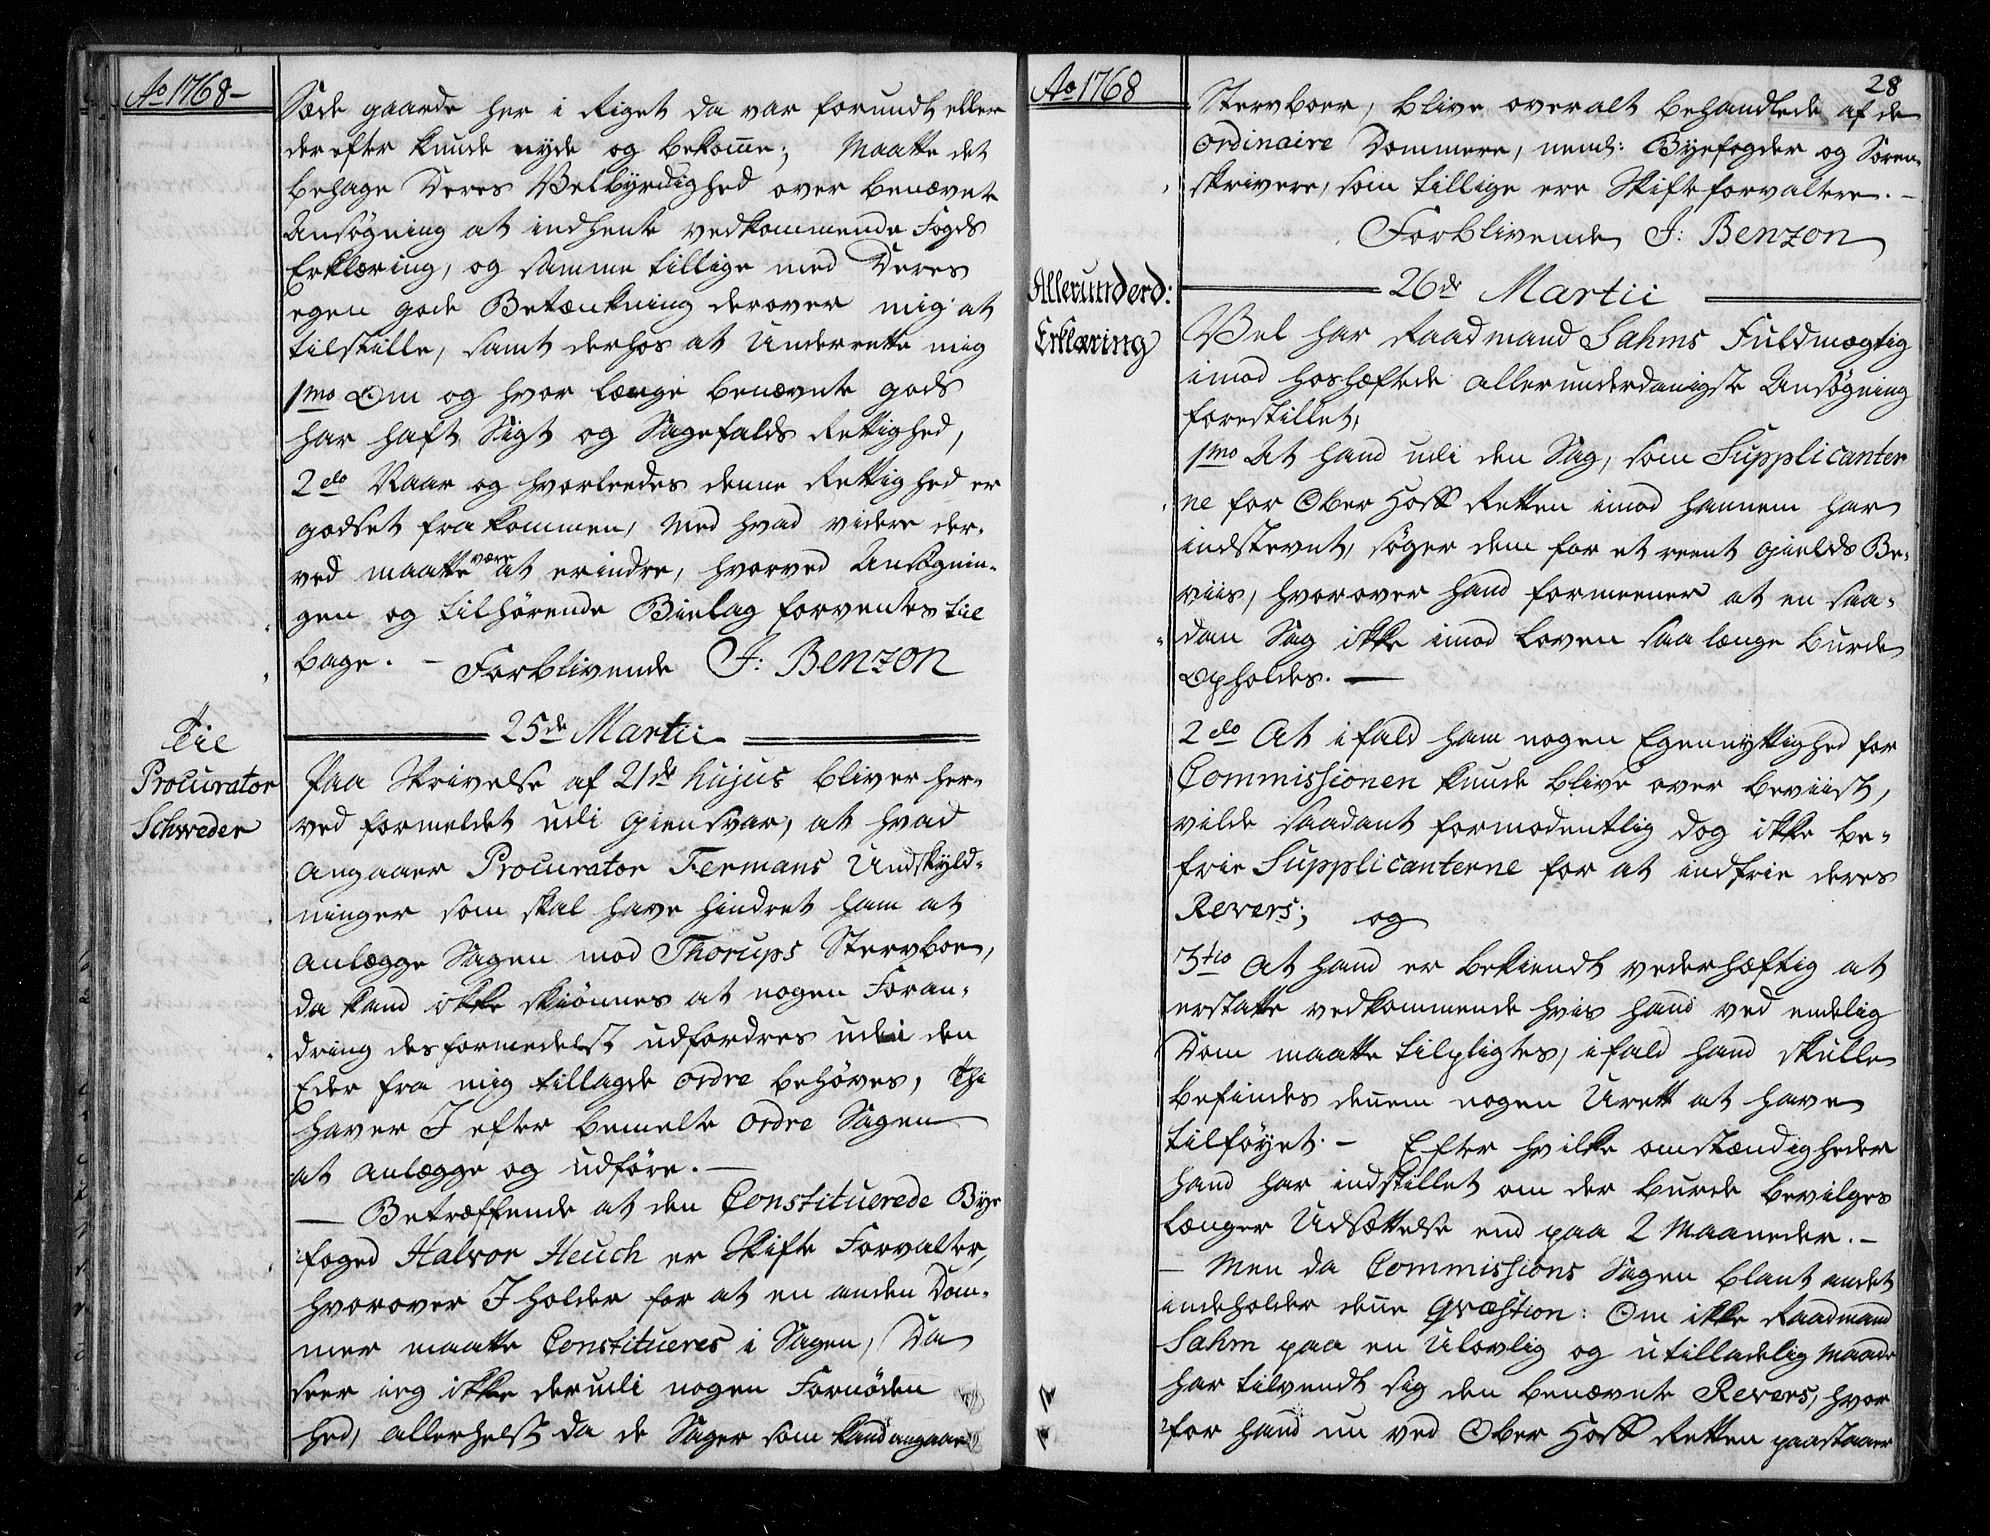 Ao 1768 -
Sæde gaarde her i Riget da var forundt eller
derefter kunde nyde og bekomme; Maatte det
behage Deres Velbyrdighed over benævnte
Ansøgning at indhente vedkommende Fogds
Erklæring, og samme tillige med Deres
egen gode Betænkning derover mig at
tilstille, samt derhos at Underrette mig
1mo Om og hvor længe benævnte gods
har haft Sigt og Sagefalds Rettighed,
2do Naar og hvorledes denne Rettighed er
godset frakommen, Med hvad videre der-
ved maatte være at erindre, hvorved Ansøgnin-
gen og tilhørende Bielag forventes til
bage. - Forblivende J: Benzon
25de Martii
Til
Procurator
Schweder
Paa Skrivelse af 21de hujus bliver her-
ved formeldet udi Giensvar, at hvad
angaaer Procurator Fermans Undskyld-
ninger som skal have hindret ham at
anlægge Sagen mod Thorups Stervboe,
da kand ikke skiønnes at nogen Foran-
dring desformedelst udfordres udi den
Eder fra mig tillagde Ordre behøves, thi
haver I efter bemelte Ordre Sagen
at anlægge og udføre. -
- Betræffende at den Constituerede Bye
foged Halvor Heuch er Skifte Forvalter,
hvorover I holder for at en anden Dom-
mer maatte Constitueres i Sagen, Da
seer ieg ikke derudi nogen Fornøden
hed, allerhelst da de Sager som kand angaae
Ao 1768
28
Stervboer, blive overalt behandlede af de
Ordinaire Dommere, neml: Byefogder og Soren-
skrivere, som tillige ere Skifteforvaltere. -
Forblivende J: Benzon
26de Martii
Allerunderd:
Erklæring
Vel har Raadmand Sahms Fuldmægtig
imod hoshæftede allerunderdanigste Ansøgning
forestillet,
1mo At hand udi den Sag, som Supplicanter
ne for Ober Hoff Retten imod hannem har
indstevnt, søger dem for et reent gields Be-
viis, hvorover hand formeener at en saa-
dan Sag ikke imod Loven saa længe burde
Opholdes. -
2do At ifald ham nogen Egennyttighed for
Commissionen kunde blive over beviist,
vilde saadant formodentlig dog ikke be-
frie Supplicanterne for at indfrie deres
Revers; og
3tio At hand er bekiendt vederhæftig at
erstatte vedkommende hvis hand ved endelig
Dom maatte tilpligtes, ifald hand skulle
befindes dennem nogen Urett at have
tilføyet. - Efter hvilke omstændigheder
hand har indstillet om der burde bevilges
længer Udsættelse end paa 2 Maaneder. -
- Men da Commissions Sagen blant andet
indeholder denne Qvæstion: Om ikke Raadmand
Sahm paa en Ulovlig og utilladelig Maade
har tilvendt sig den benævnte Revers, hvor
for hand nu ved Ober Hoff Retten paastaaer